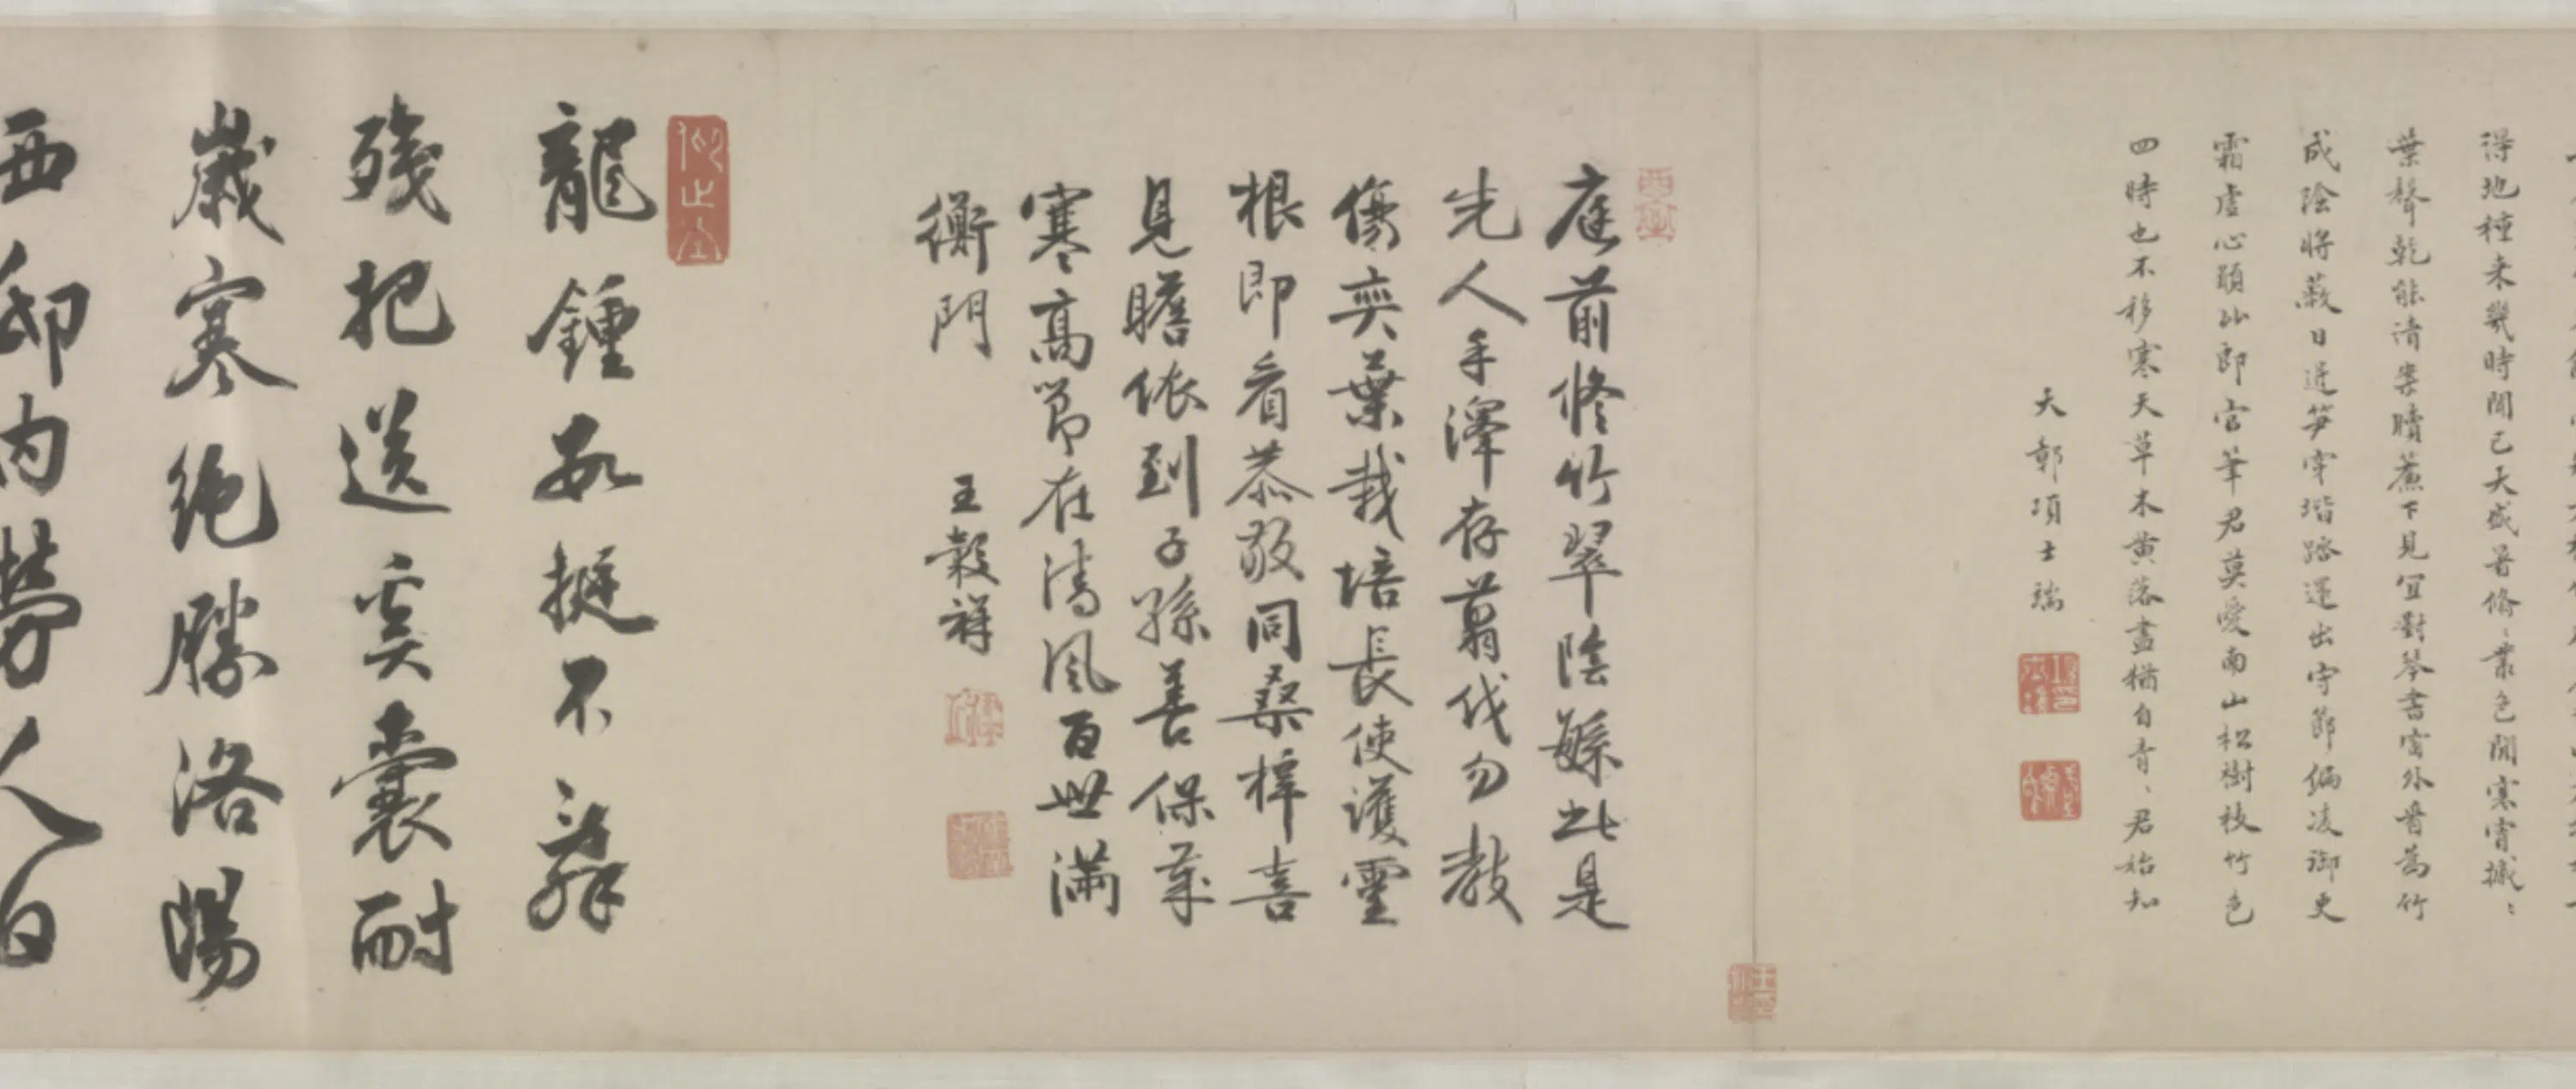 得地種來幾時間已大盛暑脩〻叢色閒寒宵摵〻
葉聲乾能清案牘簾下見宜對琴書窗外看為竹
成陰將蔽日迸笋穿堦踏還出守節偏凌御史
霜虛心願比郎官筆君莫愛南山松樹枝竹色
四時也不移寒天草木黃落盡猶自青〻君始知
天彰項士瑞
庭前脩竹翠陰繇此是
先人手澤存翦伐勿教
傷奕葉栽培長使護靈
根即看恭敬同桑梓喜
見瞻依到子孫善保歲
寒高節在清風百世滿
衡門
王穀祥
龍鍾數挺不辭
殘把送奚囊耐
歲寒絕勝洛陽
西邸內勞人日